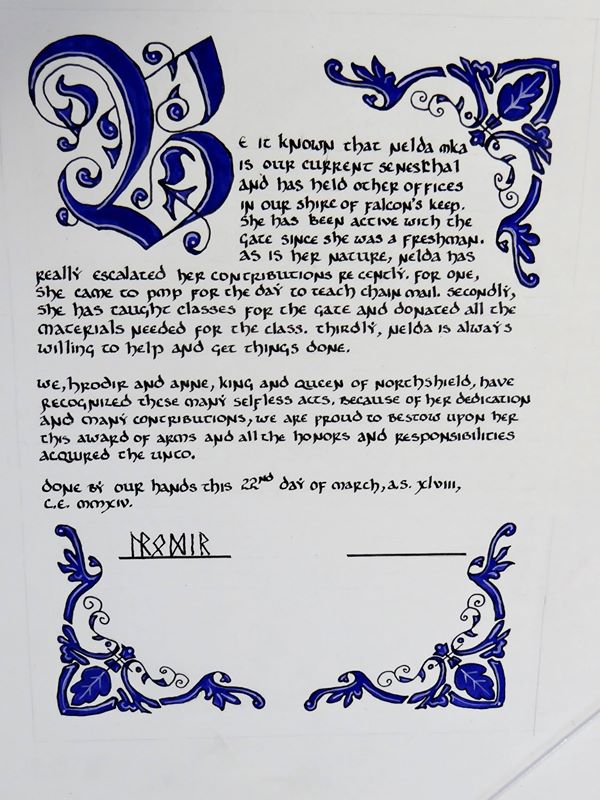 Be it known that Nelda mka
is our current seneschal
and has held other offices
in our shire of Falcon's Keep.
She has been active with the
Gate since she was a freshman.
As is her nature, Nelda has
really escalated her contributions recently. For one,
she came to PMP for the day to teach chain mail. Secondly,
she has taught classes for the Gate and donated all the
materials needed for the class. Thirdly, Nelda is always
willing to help and get things done.
We, Hrodir and Anne, King and Queen of Northshield, have
recognized these many selfless acts. Because of her dedication
and many contributions, we are proud to bestow upon her
this award of arms and all the honors and responsibilities
acquired the unto.
Done by our hands this 22nd day of March, A.S. XLVIII,
C.E. MMXIV.
ᚺᚱᛟᛞᛁᚱ